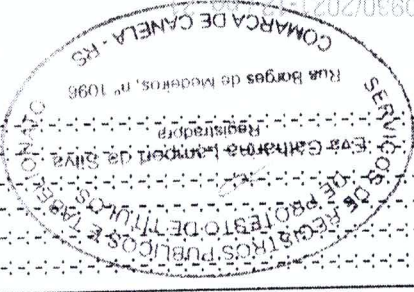 SERVIÇOS DE REGISTROS PÚBLICOS E TABELIONATO
DE PROTESTO DE TÍTULOS
Eva Catharina Lamperi da Silva
Registradora
Rua Borges de Medeiros, n° 1096
COMARCA DE CANELA - RS